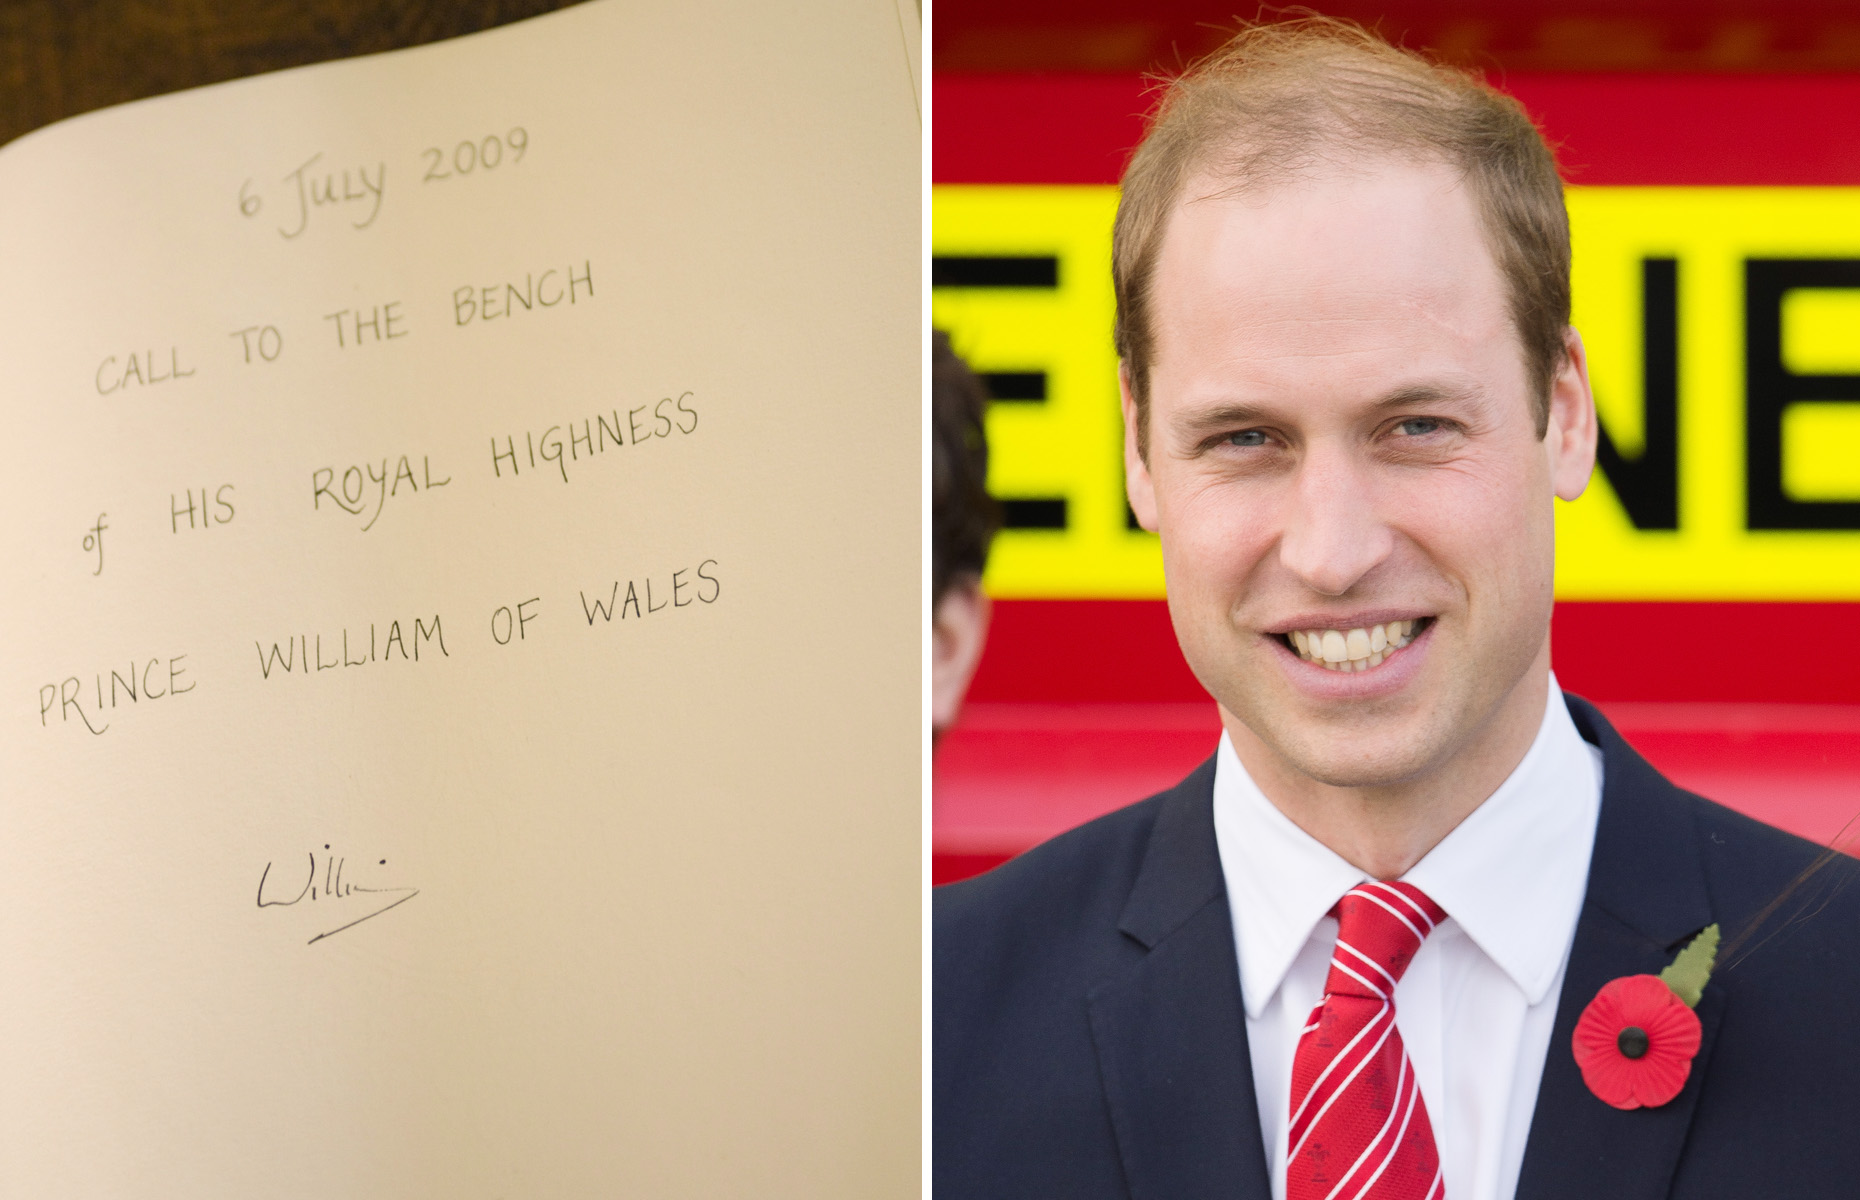 6 July 2009
CALL TO THE BENCH
of HIS ROYAL HIGHNESS
PRINCE WILLIAM OF WALES
William